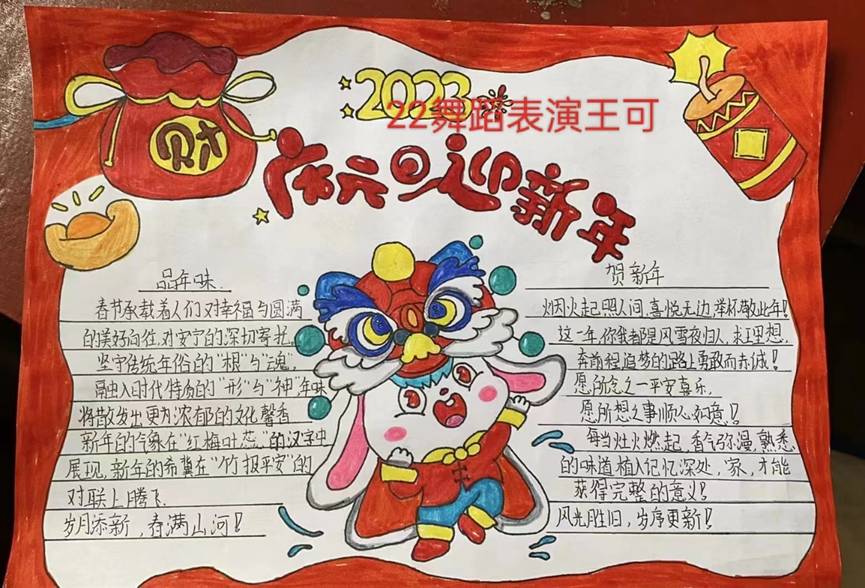 2023
22舞蹈表演王可
庆元旦迎新年
财
品年味
春节承载着人们对幸福与圆满
的美好向往,对安宁的深切寄托,
坚守传统年俗的"根"与"魂",
融入时代特质的"形"与"神"年味
将散发出更为浓郁的文化馨香
新年的气象在"红梅吐蕊"的汉字中
展现,新年的希冀在"竹报平安"的
对联上腾飞
岁月添新,春满山河!
贺新年
烟火起照人间,喜悦无边,举杯敬此年!
这一年,你我都是风雪夜归人,求理想,
奔前程,追梦的路上勇敢而赤诚!
愿所念之一平安喜乐,
愿所想之事顺心如意!
每当灶火燃起,香气弥漫,熟悉
的味道植入记忆深处,家,才能
获得完整的意义!
风光胜旧,岁序更新!